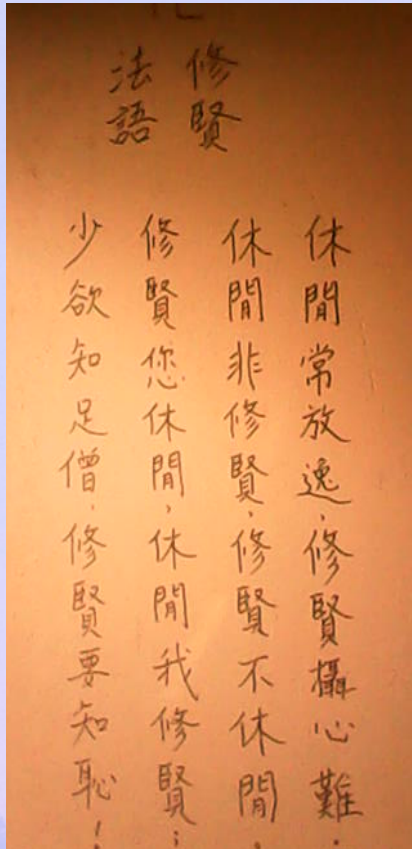 修賢
法語
休閒常放逸，修賢攝心難。
休閒非修賢，修賢不休閒。
修賢您休閒，休閒我修賢；
少欲知足僧，修賢要知恥！